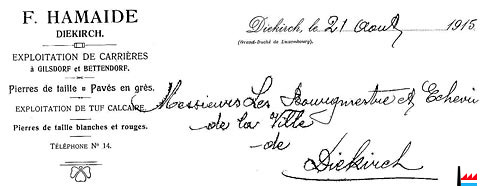 F. HAMAIDE
DIEKIRCH.
EXPLOITATION DE CARRIÈRES
à GILSDORF et BETTENDORF.
Pierres de taille • Pavés en grès.
EXPLOITATION DE TUF CALCAIRE
Pierres de taille blanches et rouges.
TÉLÉPHONE Nº 14.
Diekirch, le 21 Août 1915
(Grand-Duché de Luxembourg).
Messieurs Les Bourgmestre et Echevin
de la Ville
de
Diekirch